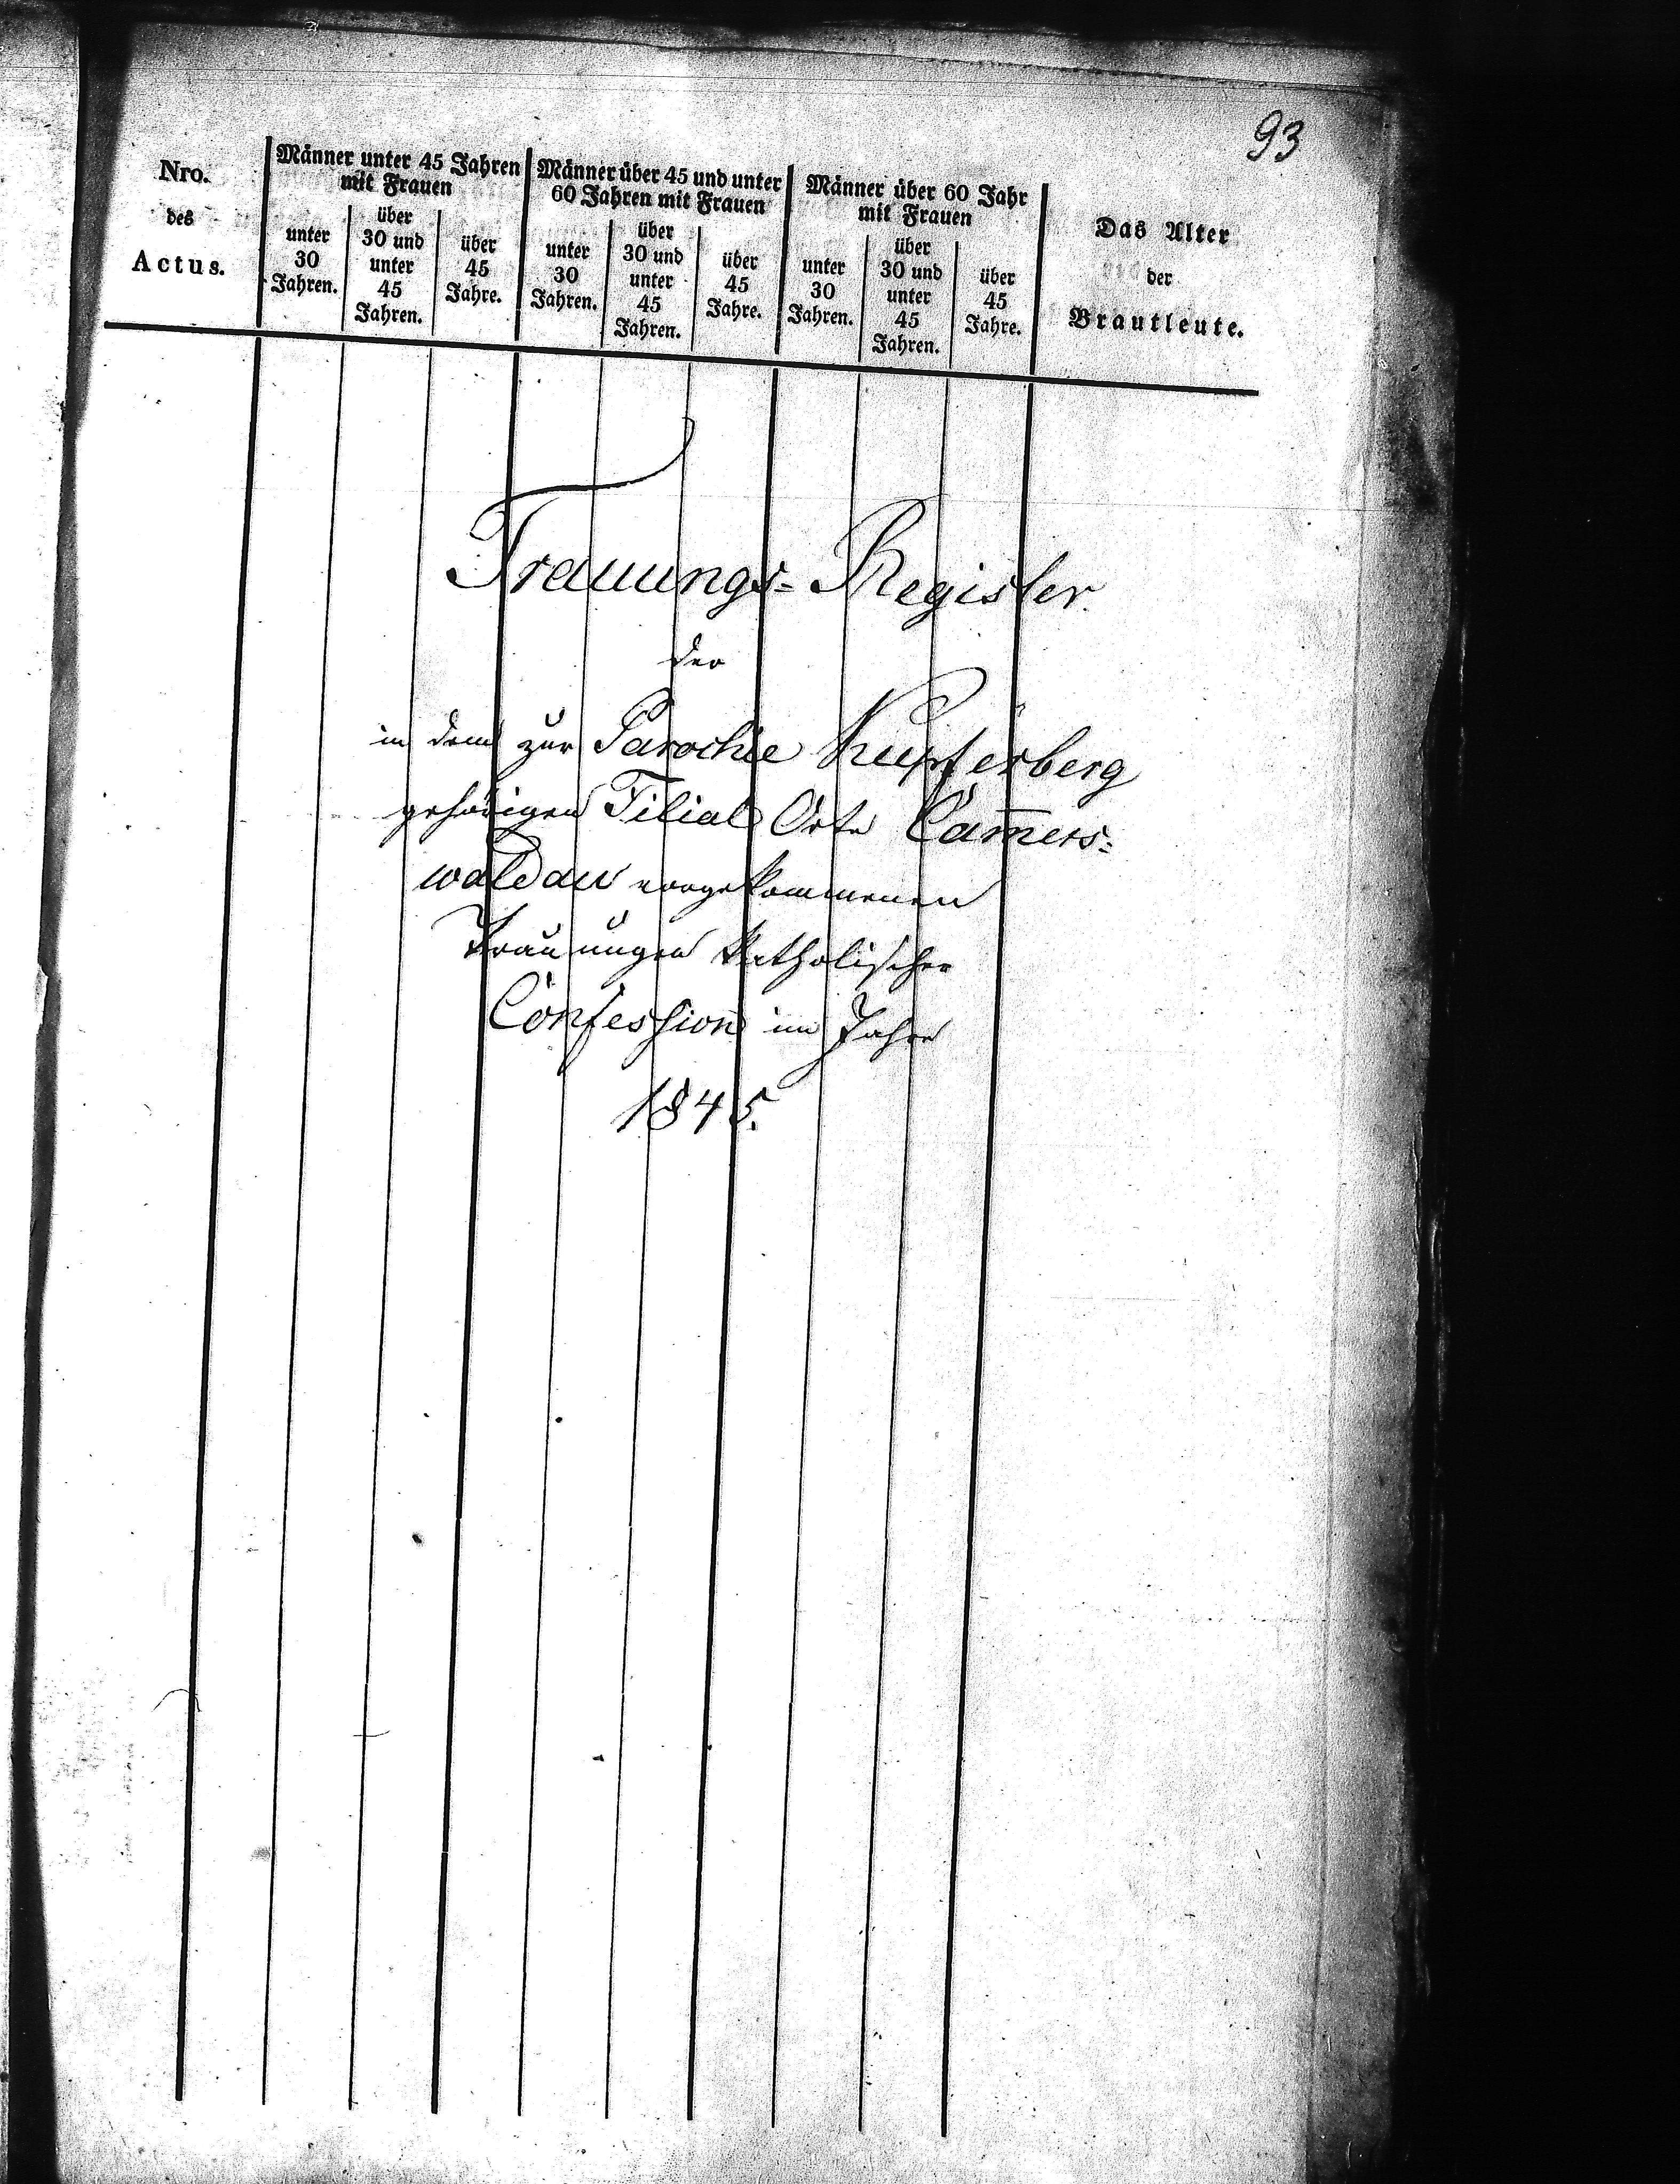 93
Nro.
des
Actus.
Männer unter 45 Jahren
mit Frauen
unter
30
Jahren.
über
30 und
unter
45
Jahren.
über
45
Jahre.
Männer über 45 und unter
60 Jahren mit Frauen
unter
30
Jahren.
über
30 und
unter
45
Jahren.
über
45
Jahre.
Männer über 60 Jahr
mit Frauen
unter
30
Jahren.
über
30 und
unter
45
Jahren.
über
45
Jahre.
Das Alter
der
Brautleute.
Trauungs= Register
der
in dem zur Parochie Kupferberg
gehörigen Filial Orte Cam̅ers=
waldau vorgekommenen
Trauungen katholischer
Confession im Jahre
1845.